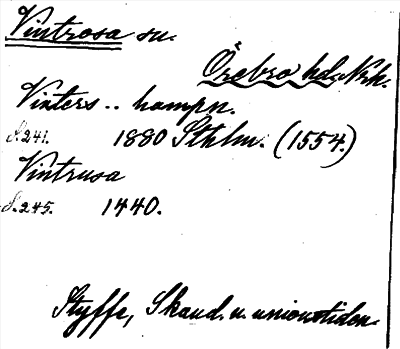 Vintrosa sn.
Örebro hd. Nrk.
Vinters .. hampn.
S. 241. 1880 Sthlm. (1554.)
Vintrusa
S. 245. 1440.
Styffe, Skand. u. unionstiden.